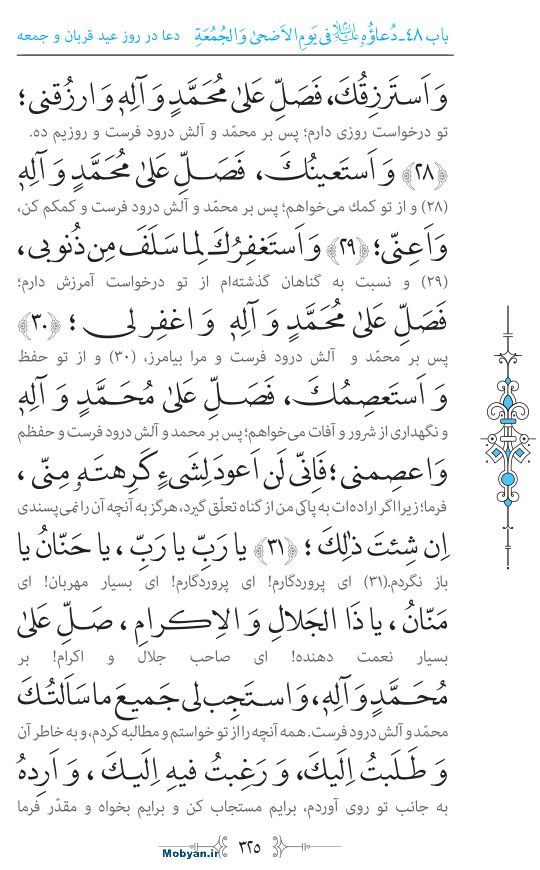 باب ۴۸-دُعاؤُهُ عليه‌السلام فی یَومِ الاَضحیٰ وَالجُمُعَةِ دعا در روز عید قربان و جمعه
وَ اَستَرزِقُكَ، فَصَلِّ عَلیٰ مُحَمَّدٍ وَ آلِهٖ وَ ارزُقنی؛
تو درخواست روزی دارم؛ پس بر محمّد و آلش درود فرست و روزیم ده.
﴿۲۸﴾ وَ اَستَعینُكَ، فَصَلِّ عَلیٰ مُحَمَّدٍ وَ آلِهٖ
(۲۸) و از تو کمك می‌خواهم؛ پس بر محمّد و آلش درود فرست و کمکم کن،
وَ اَعِنّی؛ ﴿۲۹﴾ وَ اَستَغفِرُكَ لِما سَلَفَ مِن ذُنوبی،
(۲۹) و نسبت به گناهان گذشته‌ام از تو درخواست آمرزش دارم؛
فَصَلِّ عَلیٰ مُحَمَّدٍ وَ آلِهٖ وَ اغفِر لی ؛ ﴿۳۰﴾
پس بر محمّد و آلش درود فرست و مرا بیامرز، (۳۰) و از تو حفظ
وَ اَستَعصِمُكَ، فَصَلِّ عَلیٰ مُحَمَّدٍ وَ آلِهٖ
و نگهداری از شرور و آفات می‌خواهم؛ پس بر محمد و آلش درود فرست و حفظم
وَ اعصِمنی ؛ فَاِنّی لَن اَعودَ لِشَیءٍ کَرِهتَهٗ مِنّی ،
فرما؛ زیرا اگر اراده‌ات به پاکی من از گناه تعلّق گیرد، هرگز به آنچه آن را نمی‌پسندی
اِن شِئتَ ذٰلِكَ ؛ ﴿۳۱﴾ یا رَبِّ یا رَبِّ ، یا حَنّانُ یا
باز نگردم.(۳۱) ای پروردگارم! ای پروردگارم! ای بسیار مهربان! ای
مَنّانُ ، یا ذَا الجَلالِ وَ الاِکرامِ ، صَلِّ عَلیٰ
بسیار نعمت دهنده! ای صاحب جلال و اکرام! بر
مُحَمَّدٍ وَ آلِهٖ، وَ استَجِب لی جَمیعَ ما سَاَلتُكَ
محمّد و آلش درود فرست. همه آنچه را از تو خواستم و مطالبه کردم، و به خاطر آن
وَ طَلَبتُ اِلَیكَ، وَ رَغِبتُ فیهِ اِلَیكَ ، وَ اَرِدهُ
به جانب تو روی آوردم، برایم مستجاب کن و برایم بخواه و مقدّر فرما
۳۲۵
Mobyan.ir